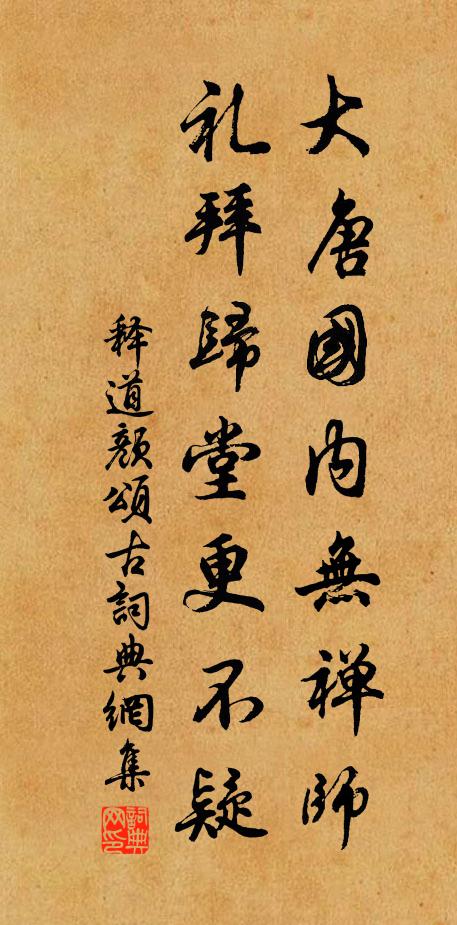 大唐國内無禅師
礼拜歸堂更不疑
释道顔頌古詞典網集
詞典网印